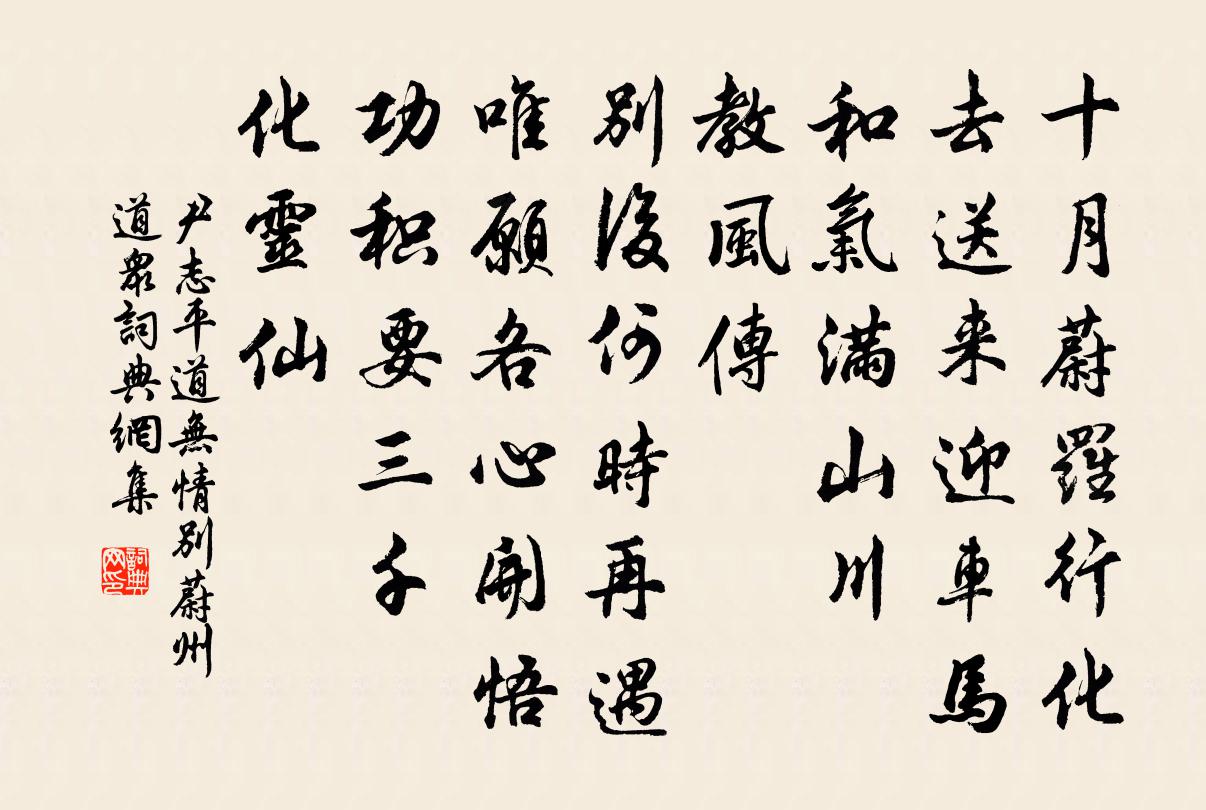 十月蔚羅行化
去送来迎車馬
和氣滿山川
教風傳
別後何時再遇
唯願各心開悟
功积要三千
化靈仙
尹志平道無情別蔚州
道衆詞典網集
詞典网印